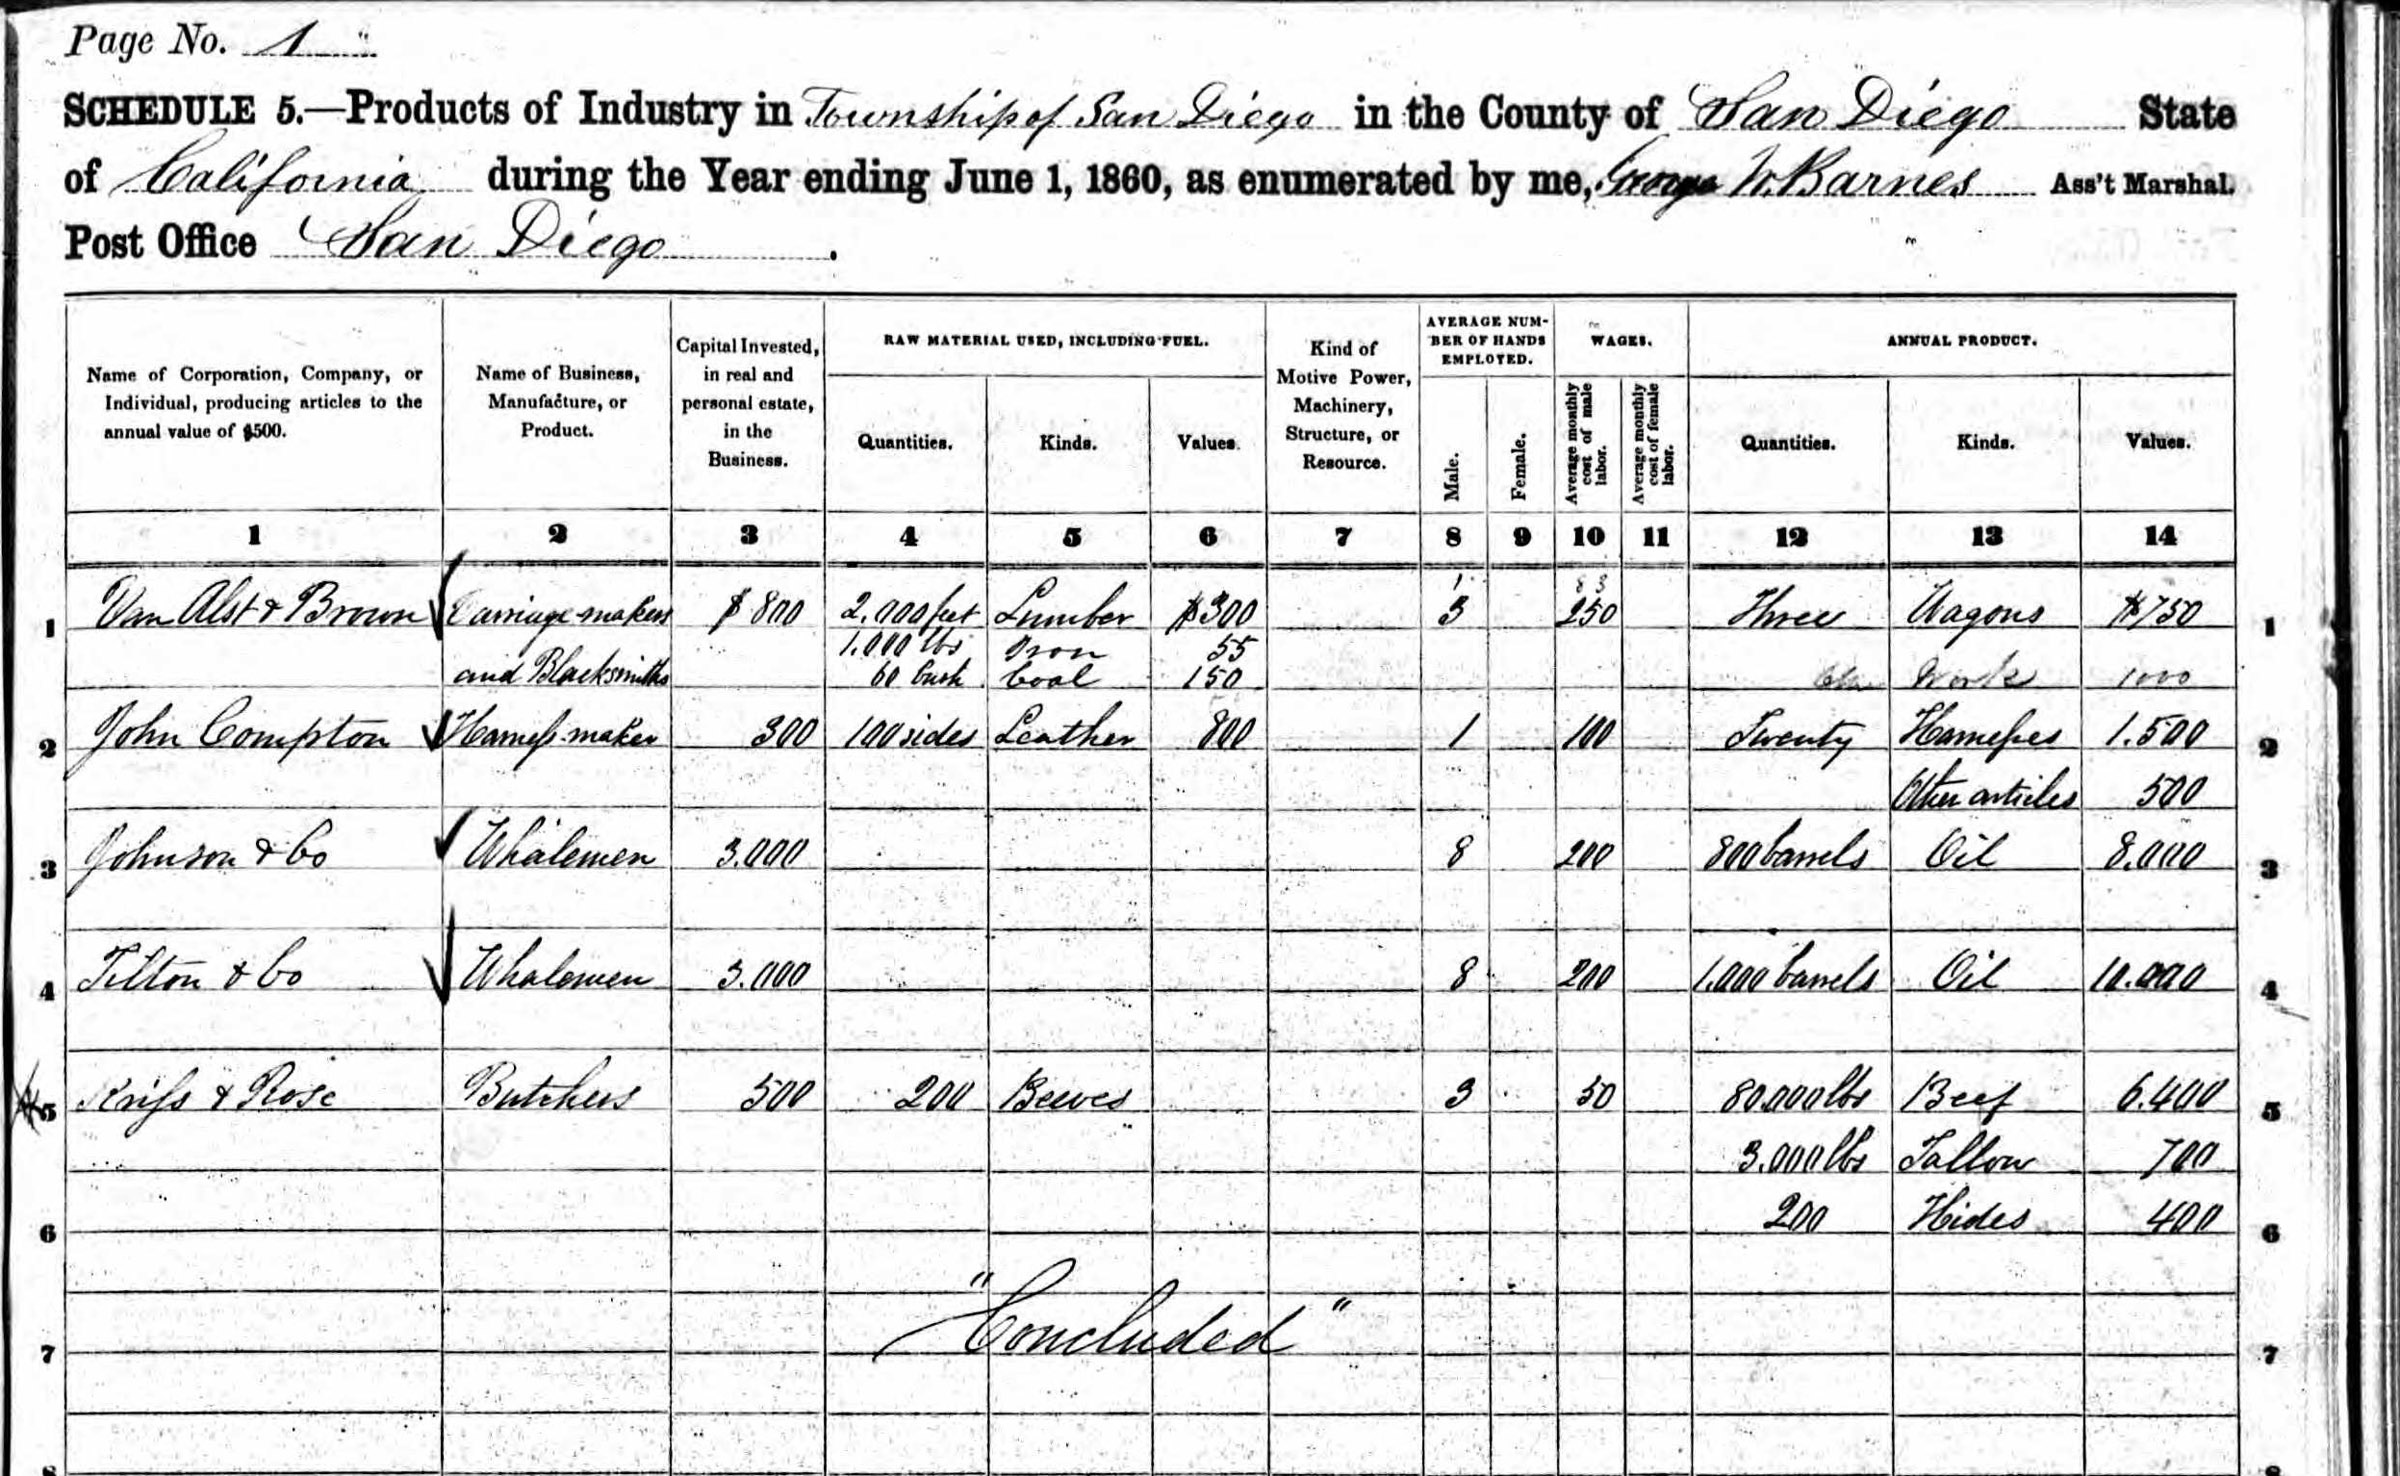 Page No. 1
SCHEDULE 5.—Products of Industry in Township of San Diego in the County of San Diego State
of California during the Year ending June 1, 1860, as enumerated by me, George W. Barnes Ass't Marshal.
Post Office San Diego.
Name of Corporation, Company, or Individual, producing articles to the annual value of $500.
Name of Business, Manufacture, or Product.
Capital Invested, in real and personal estate, in the Business.
RAW MATERIAL USED, INCLUDING FUEL.
Quantities. Kinds. Values.
Kind of Motive Power, Machinery, Structure, or Resource.
AVERAGE NUMBER OF HANDS EMPLOYED.
Male. Female.
WAGES.
Average monthly cost of male labor. Average monthly cost of female labor.
ANNUAL PRODUCT.
Quantities. Kinds. Values.
1 2 3 4 5 6 7 8 9 10 11 12 13 14
1 83
1 Van Alst & Brown Carriage-makers $800 2,000 feet Lumber $300 3 250 Three Wagons $750 1
1,000 lbs Iron 55
and Blacksmiths 60 bush Coal 150 Work 1000
2 John Compton Harness-maker 300 100 sides Leather 800 1 100 Twenty Harnesses 1.500 2
Other articles 500
3 Johnson & Co Whalemen 3.000 8 200 800 barrels Oil 8.000 3
4 Tilton & Co Whalemen 3.000 8 200 1.000 barrels Oil 10.000 4
5 Kriss & Rose Butchers 500 200 Beeves 3 50 80.000 lbs Beef 6.400 5
3.000 lbs Tallow 700
6 200 Hides 400 6
"Concluded"
7 7
8 8